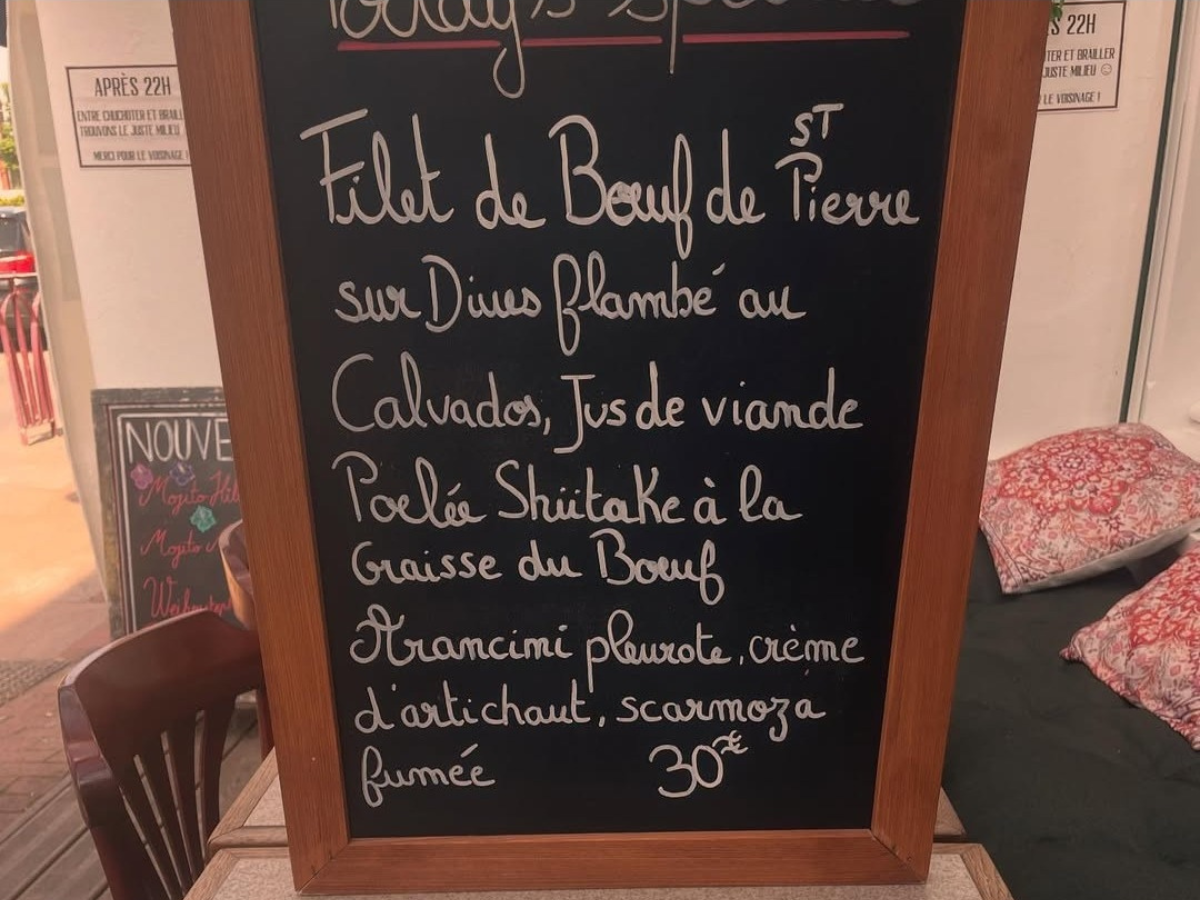 Today's Special
Filet de Bœuf de ST Pierre
sur Dives flambé au
Calvados, Jus de viande
Poelée Shiitake à la
Graisse du Bœuf
Arancini pleurote, crème
d'artichaut, scarmoza
fumée 30€
APRÈS 22H
ENTRE CHUCHOTER ET BRAILL
TROUVONS LE JUSTE MILIEU
MERCI POUR LE VOISINAGE !
S 22H
TER ET BRAILLER
JUSTE MILIEU ☺
LE VOISINAGE !
NOUVE
Mojito
Mojito